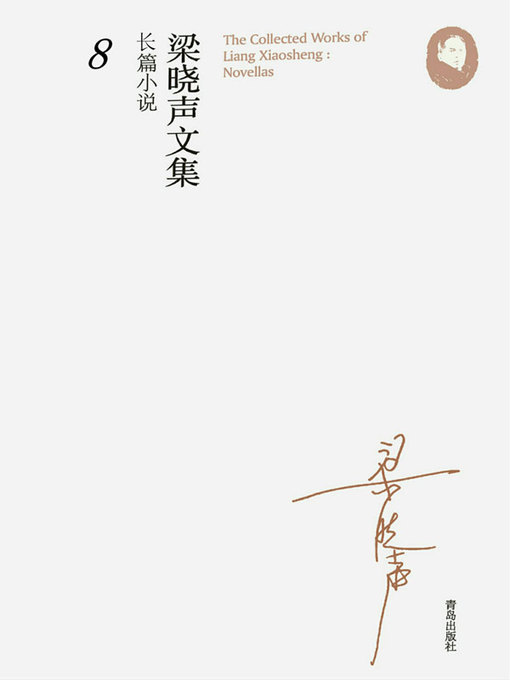 梁晓声文集
长篇小说
8
The Collected Works of
Liang Xiaosheng :
Novellas
梁晓声
青岛出版社